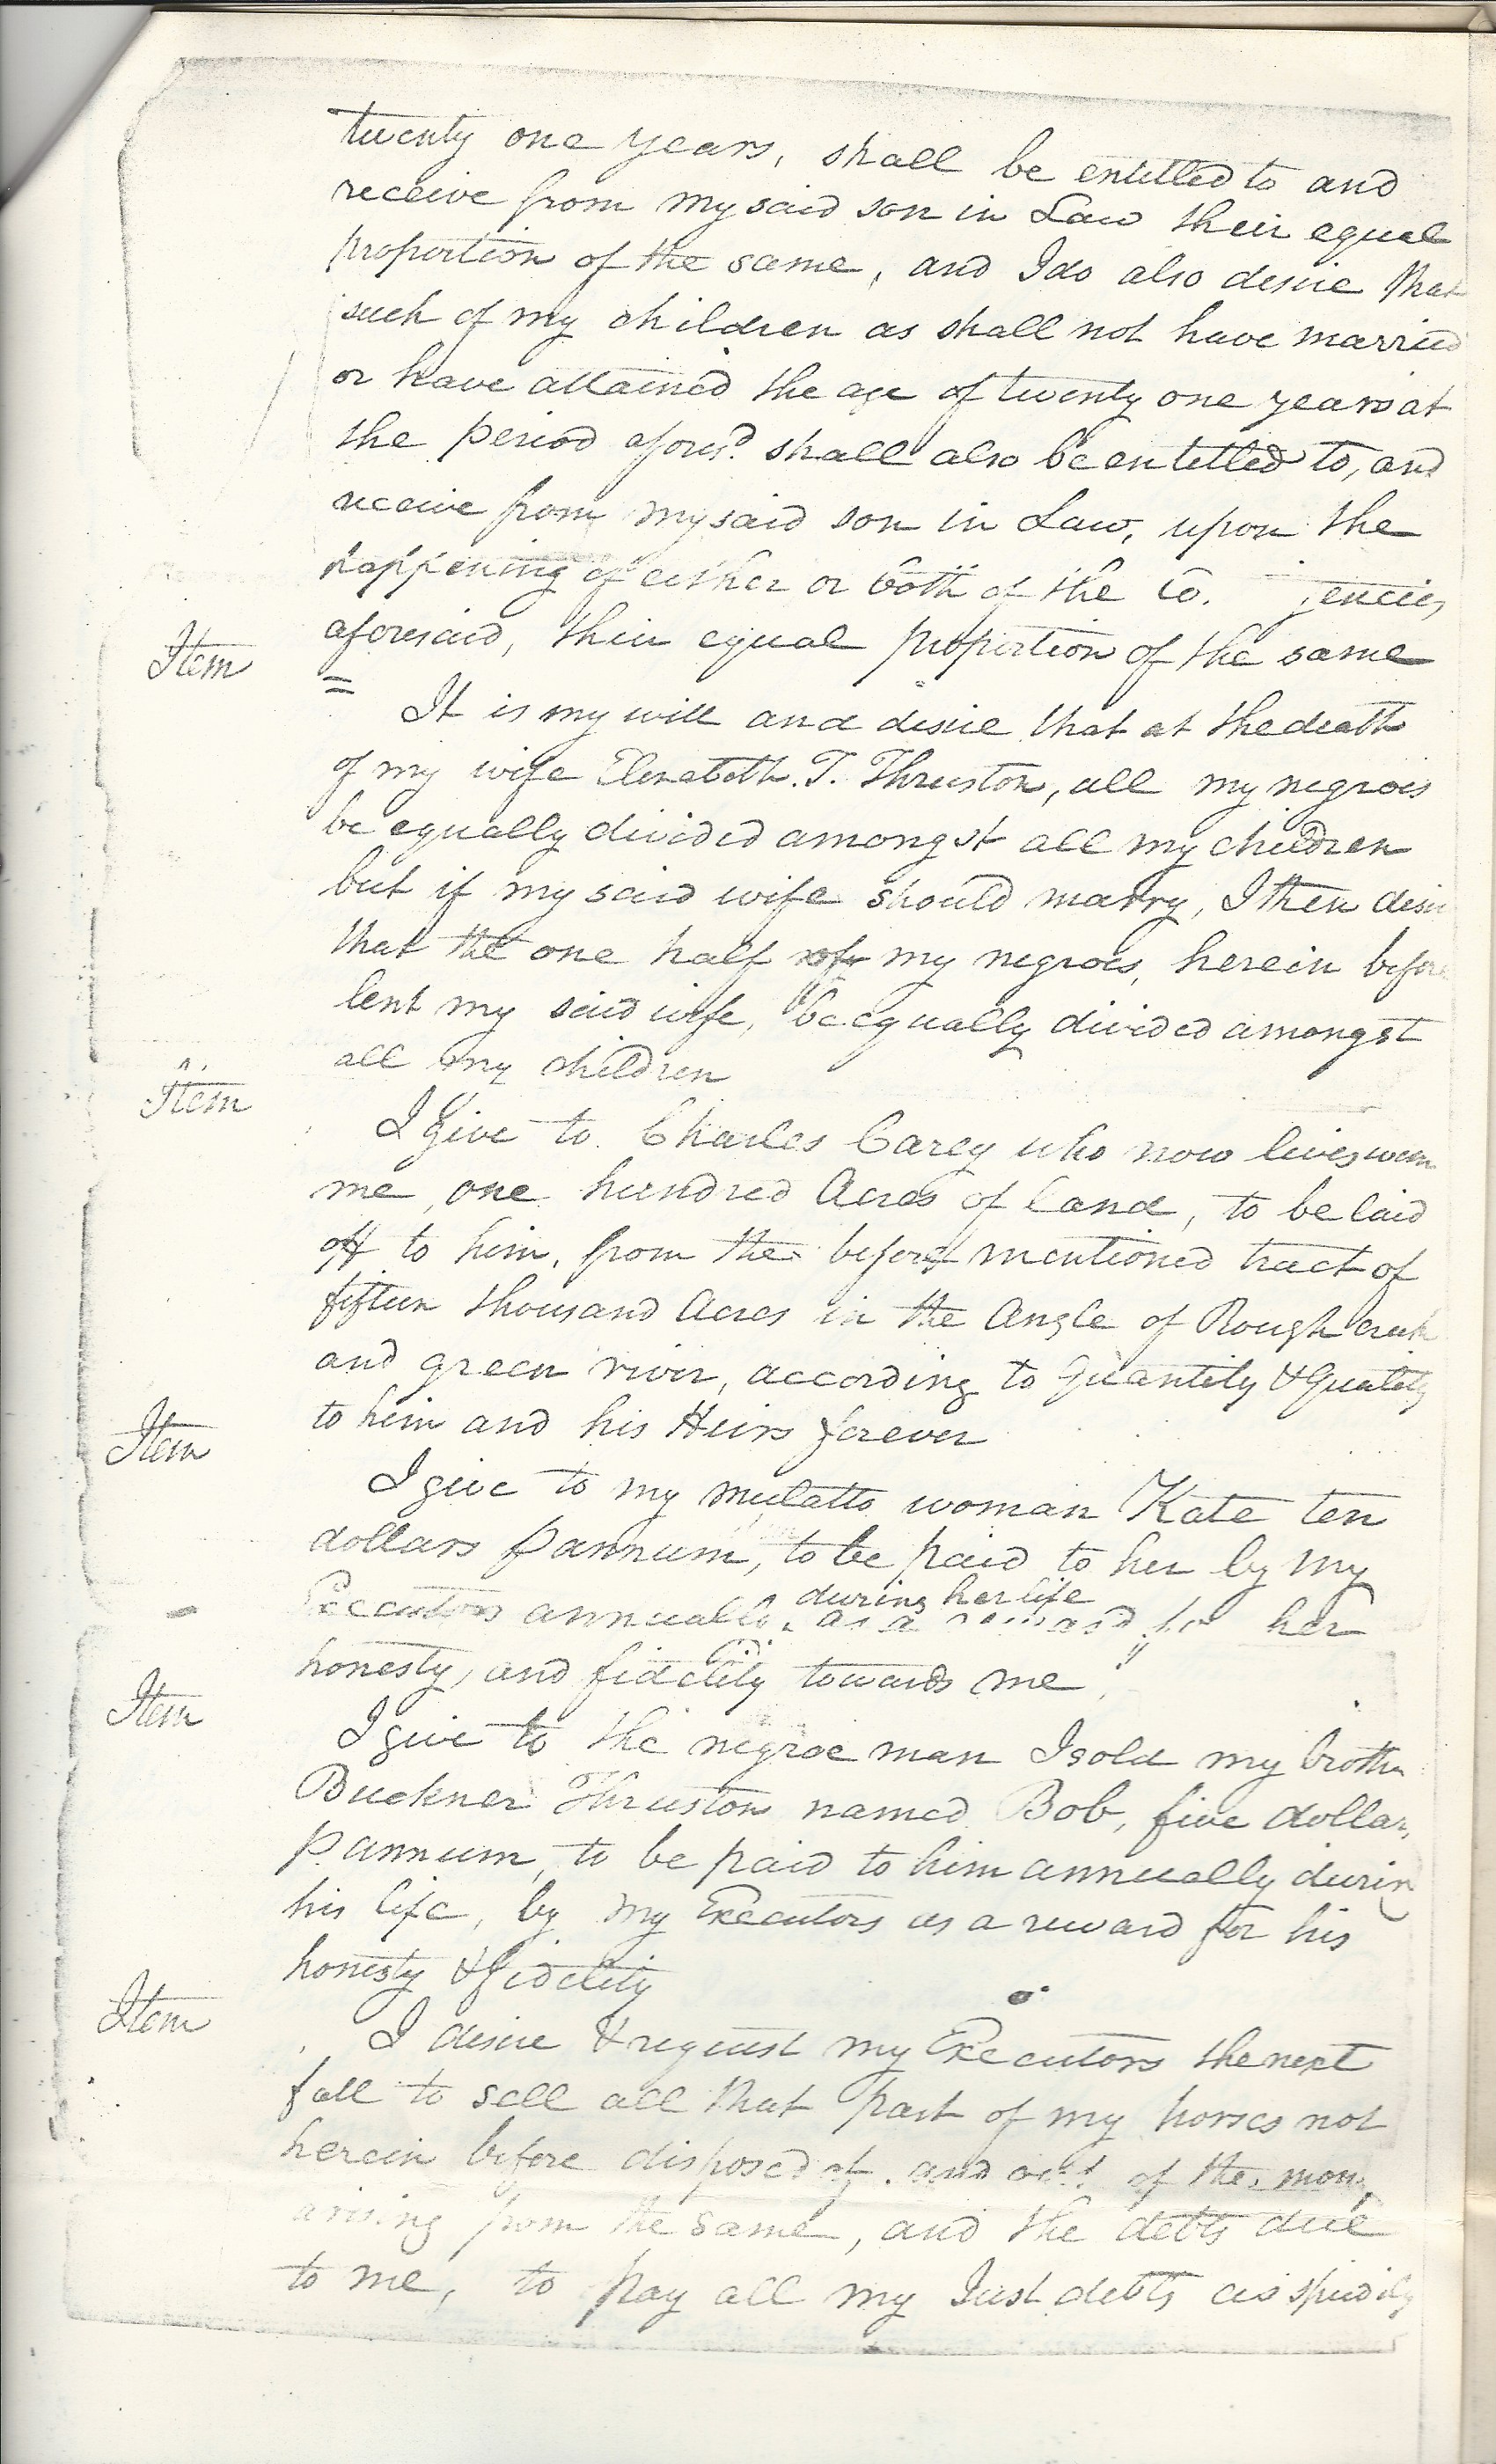 twenty one years, shall be entitled to and
receive from my said son in Law their equal
proportion of the same, and I do also desire that
such of my children as shall not have married
or have attained the age of twenty one years at
the period afores.d shall also be entitled to, and
receive from my said son in Law, upon the
happening of either or both of the co. gencies
aforesaid, their equal proportion of the same
Item
It is my will and desire that at the death
of my wife Elizabeth. T. Thruston, all my negroes
be equally divided amongst all my children
but if my said wife should marry, I then desire
that the one half of my negroes, herein before
lent my said wife, be equally divided amongst
all my children
Item
I Give to Charles Carey who now lives with
me, one hundred Acres of Land, to be laid
off to him, from the before mentioned tract of
fifteen thousand Acres in the Angle of Rough creek
and green river, according to Quantity & Quality
to him and his Heirs forever
Item
I give to my mulatto woman Kate ten
dollars P annum, to be paid to her by my
during her life
Executors annually, as a reward for her
honesty, and fidelity towards me
Item
I give to the negroe man I sold my brother
Buckner Thruston named Bob, five dollars
P. annum, to be paid to him annually during
his life, by my Executors as a reward for his
honesty & fidelity
Item
I desire & request my Executors the next
fall to sell all that part of my horses not
herein before disposed of. and out of the mon
arising from the same, and the debts due
to me, to pay all my Just debts as speedily